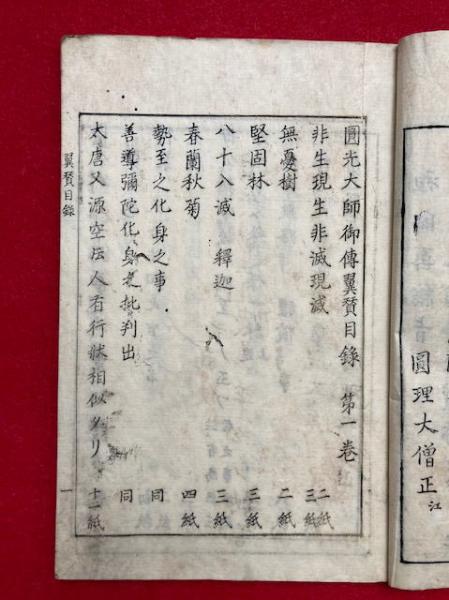 圓理大僧正江
圓光大師御傳翼賛目錄 第一卷
非生現生非滅現滅 二紙三紙
無憂樹 二紙
堅固林 三紙
八十入滅 釋迦 三紙
春蘭秋菊 四紙
勢至之化身之事 同
善導彌陀化身之批判出 同
太唐又源空法人有行狀相似タリ 十一紙
翼賛目錄 一